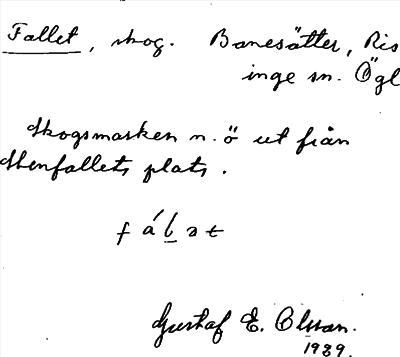 Fallet, skog. Banesätter, Ris
inge sn. Ögl
Skogsmarken n.ö ut från
Stenfallets plats.
fálət
Gustaf E. Olsson.
1929.